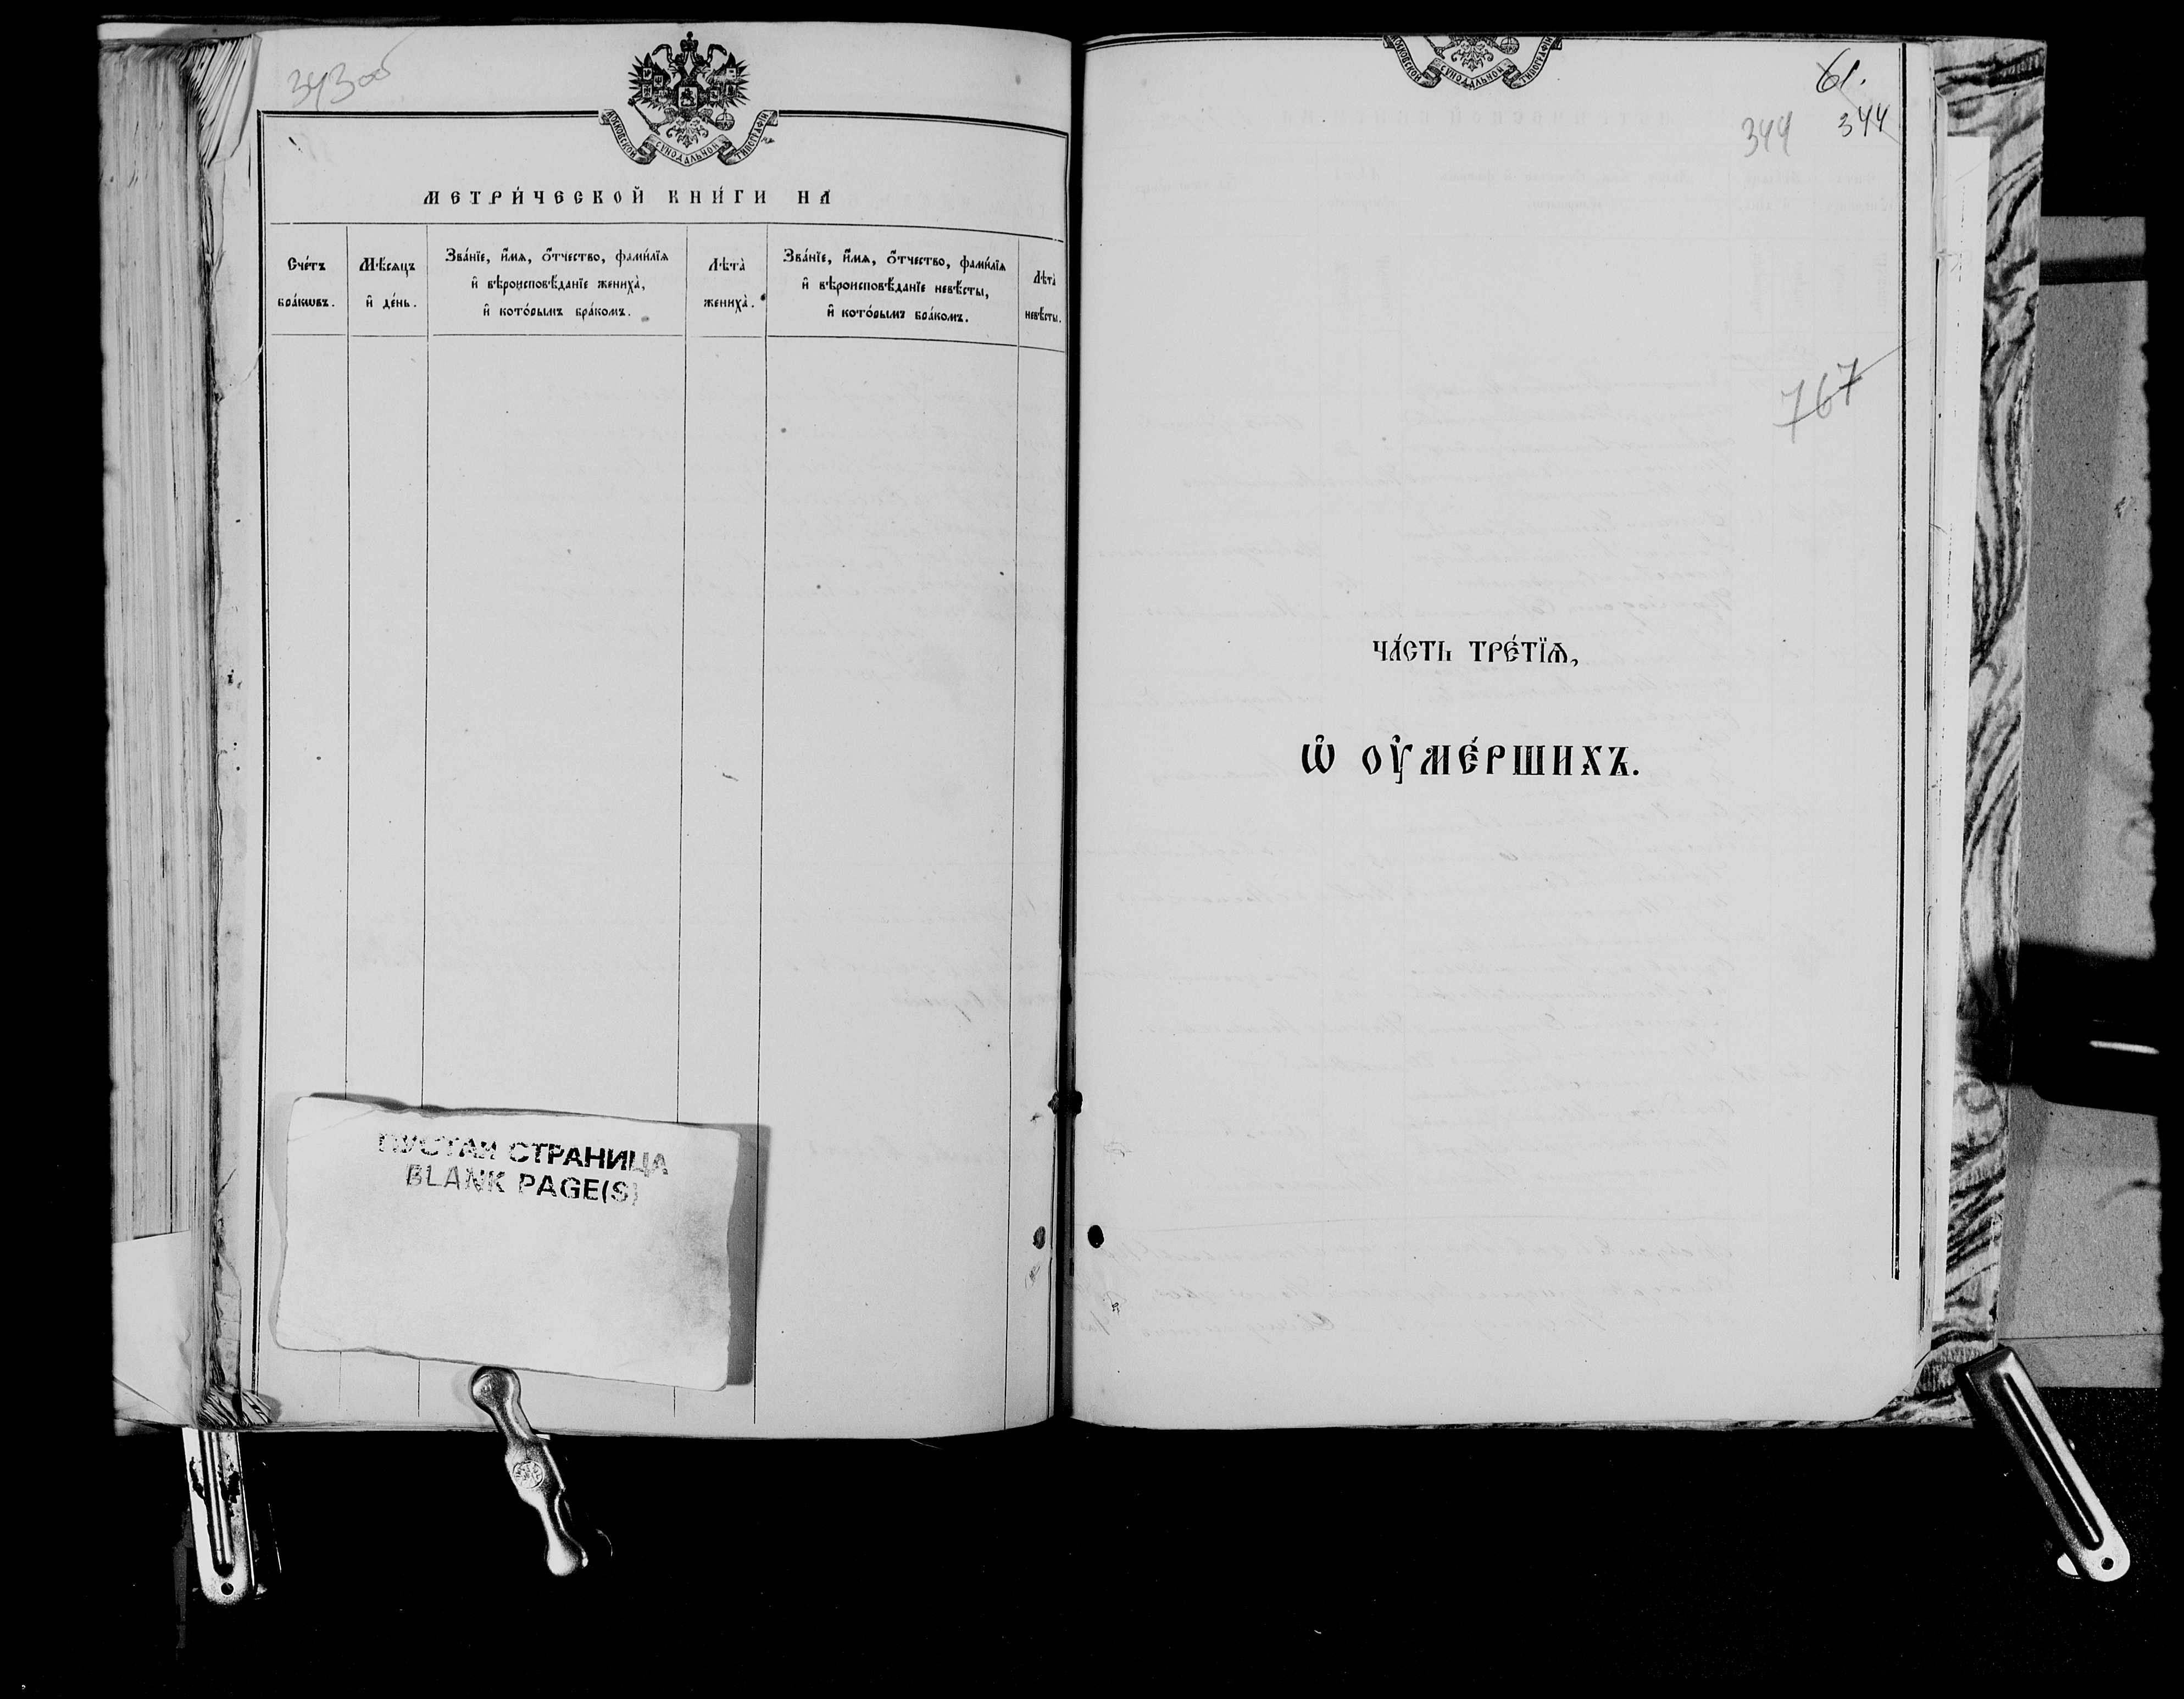 343 об
МОСКОВСКОЙ СУНОДАЛЬНОЙ ТИПОГРАФІИ
МЕТРИ́ЧЕСКОЙ КНИ́ГИ НА
Сче́тъ
бра́кѡвъ.
Мѣ́сѧцъ
и҆ де́нь.
Зва́нїе, и҆́мѧ, ѻ҆́тчество, фами́лїѧ
и҆ вѣроисповѣ́данїе жениха̀,
и҆ кото́рымъ бра́комъ.
Лѣта̀
жениха̀.
Зва́нїе, и҆́мѧ, ѻ҆́тчество, фами́лїѧ
и҆ вѣроисповѣ́данїе невѣ́сты,
и҆ кото́рымъ бра́комъ.
Лѣта̀
невѣ́сты.
ПУСТАЯ СТРАНИЦА
BLANK PAGE(S)
МОСКОВСКОЙ СУНОДАЛЬНОЙ ТИПОГРАФІИ
61.
344
344
767
ЧА́СТЬ ТРЕ́ТЇѦ,
Ѡ҆ ОУ҆МЕ́РШИХЪ.